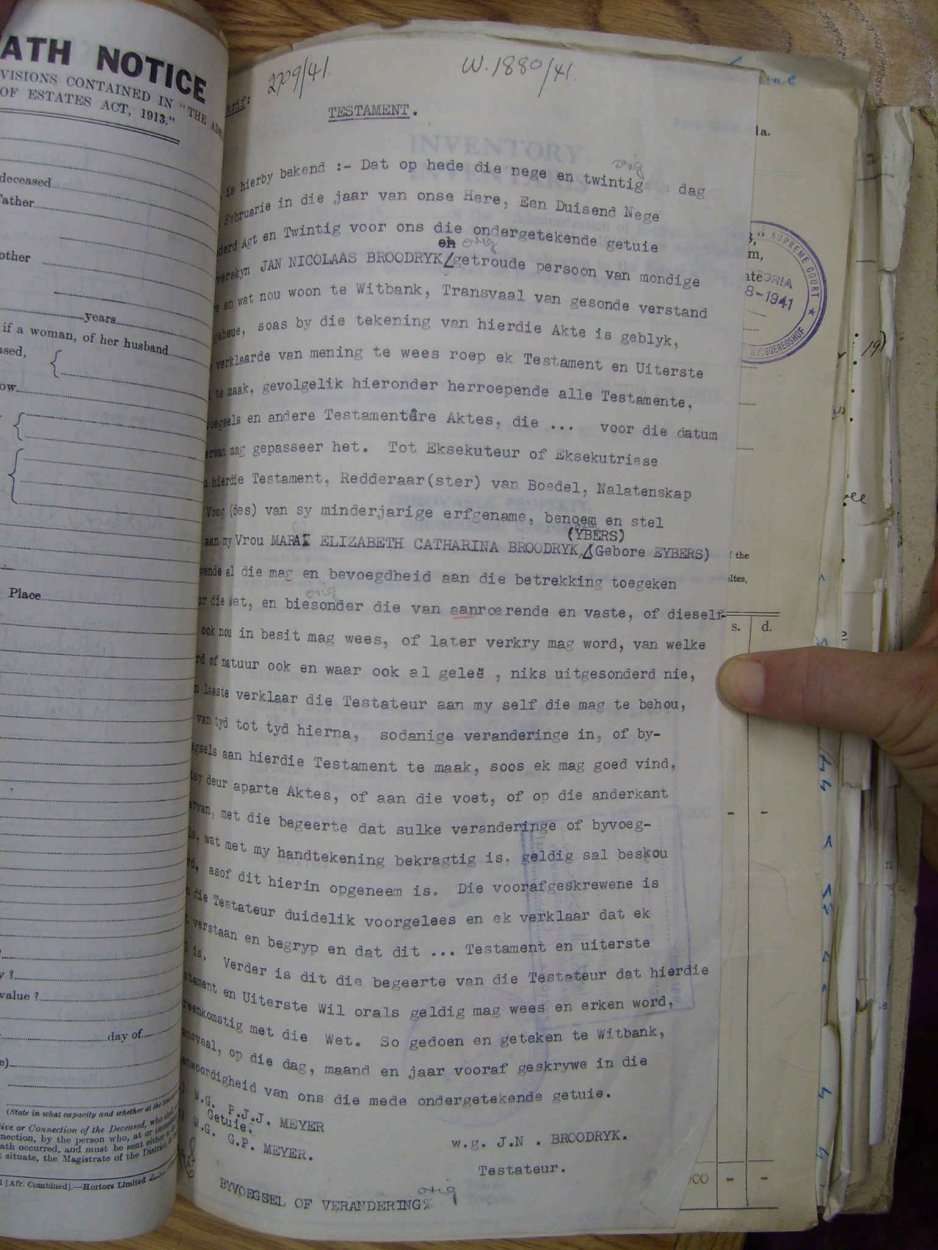 ATH NOTICE
VISIONS CONTAINED IN "THE
OF ESTATES ACT, 1913."
deceased
ather
other
years
if a woman, of her husband
ased,
ow
Place
y ?
value ?
day of
(State in what capacity and whether at the
ive or Connection of the Deceased, who
nection, by the person who, at or
ath occurred, and must be sent either
t situate, the Magistrate of the District
[Afr. Combined].—Hortors Limited
2709/41.
W.1880/41.
TESTAMENT.
is hierby bekend :- Dat op hede die nege en twintig dag
orig
Februarie in die jaar van onse Here, Een Duisend Nege
derd Agt en Twintig voor ons die ondergetekende getuie
en orig
verskyn JAN NICOLAAS BROODRYK getroude persoon van mondige
e en wat nou woon te Witbank, Transvaal van gesonde verstand
geheue, soas by die tekening van hierdie Akte is geblyk,
verklaarde van mening te wees roep ek Testament en Uiterste
te maak, gevolgelik hieronder herroepende alle Testamente,
voegsels en andere Testamentêre Aktes, die ... voor die datum
ervan mag gepasseer het. Tot Eksekuteur of Eksekutriese
hierdie Testament, Redderaar(ster) van Boedel, Nalatenskap
Voog(des) van sy minderjarige erfgename, benoem en stel
(YBERS)
aan my Vrou MARAI ELIZABETH CATHARINA BROODRYK, (Gebore EYBERS)
wende al die mag en bevoegdheid aan die betrekking toegeken
orig
ur die Wet, en biesonder die van aanroerende en vaste, of dieself-
ook nou in besit mag wees, of later verkry mag word, van welke
rd of natuur ook en waar ook al geleë , niks uitgesonderd nie,
n laaste verklaar die Testateur aan my self die mag te behou,
van tyd tot tyd hierna, sodanige veranderinge in, of by-
egsels aan hierdie Testament te maak, soos ek mag goed vind,
sy deur aparte Aktes, of aan die voet, of op die anderkant
ervan, met die begeerte dat sulke veranderinge of byvoeg-
ls, wat met my handtekening bekragtig is. geldig sal beskou
rd, asof dit hierin opgeneem is. Die voorafgeskrewene is
n die Testateur duidelik voorgelees en ek verklaar dat ek
t verstaan en begryp en dat dit ... Testament en uiterste
l is. Verder is dit die begeerte van die Testateur dat hierdie
stament en Uiterste Wil orals geldig mag wees en erken word,
reenkomstig met die Wet. So gedoen en geteken te Witbank,
ansvaal, op die dag, maand en jaar vooraf geskrywe in die
enwoordigheid van ons die mede ondergetekende getuie.
w.G. P.J.J. MEYER
Getuie.
w.G. G.P. MEYER.
w.g. J.N . BROODRYK.
Testateur.
orig
BYVOEGSEL OF VERANDERING
la.
SUPREME COURT
8-1941
f the
s. d.